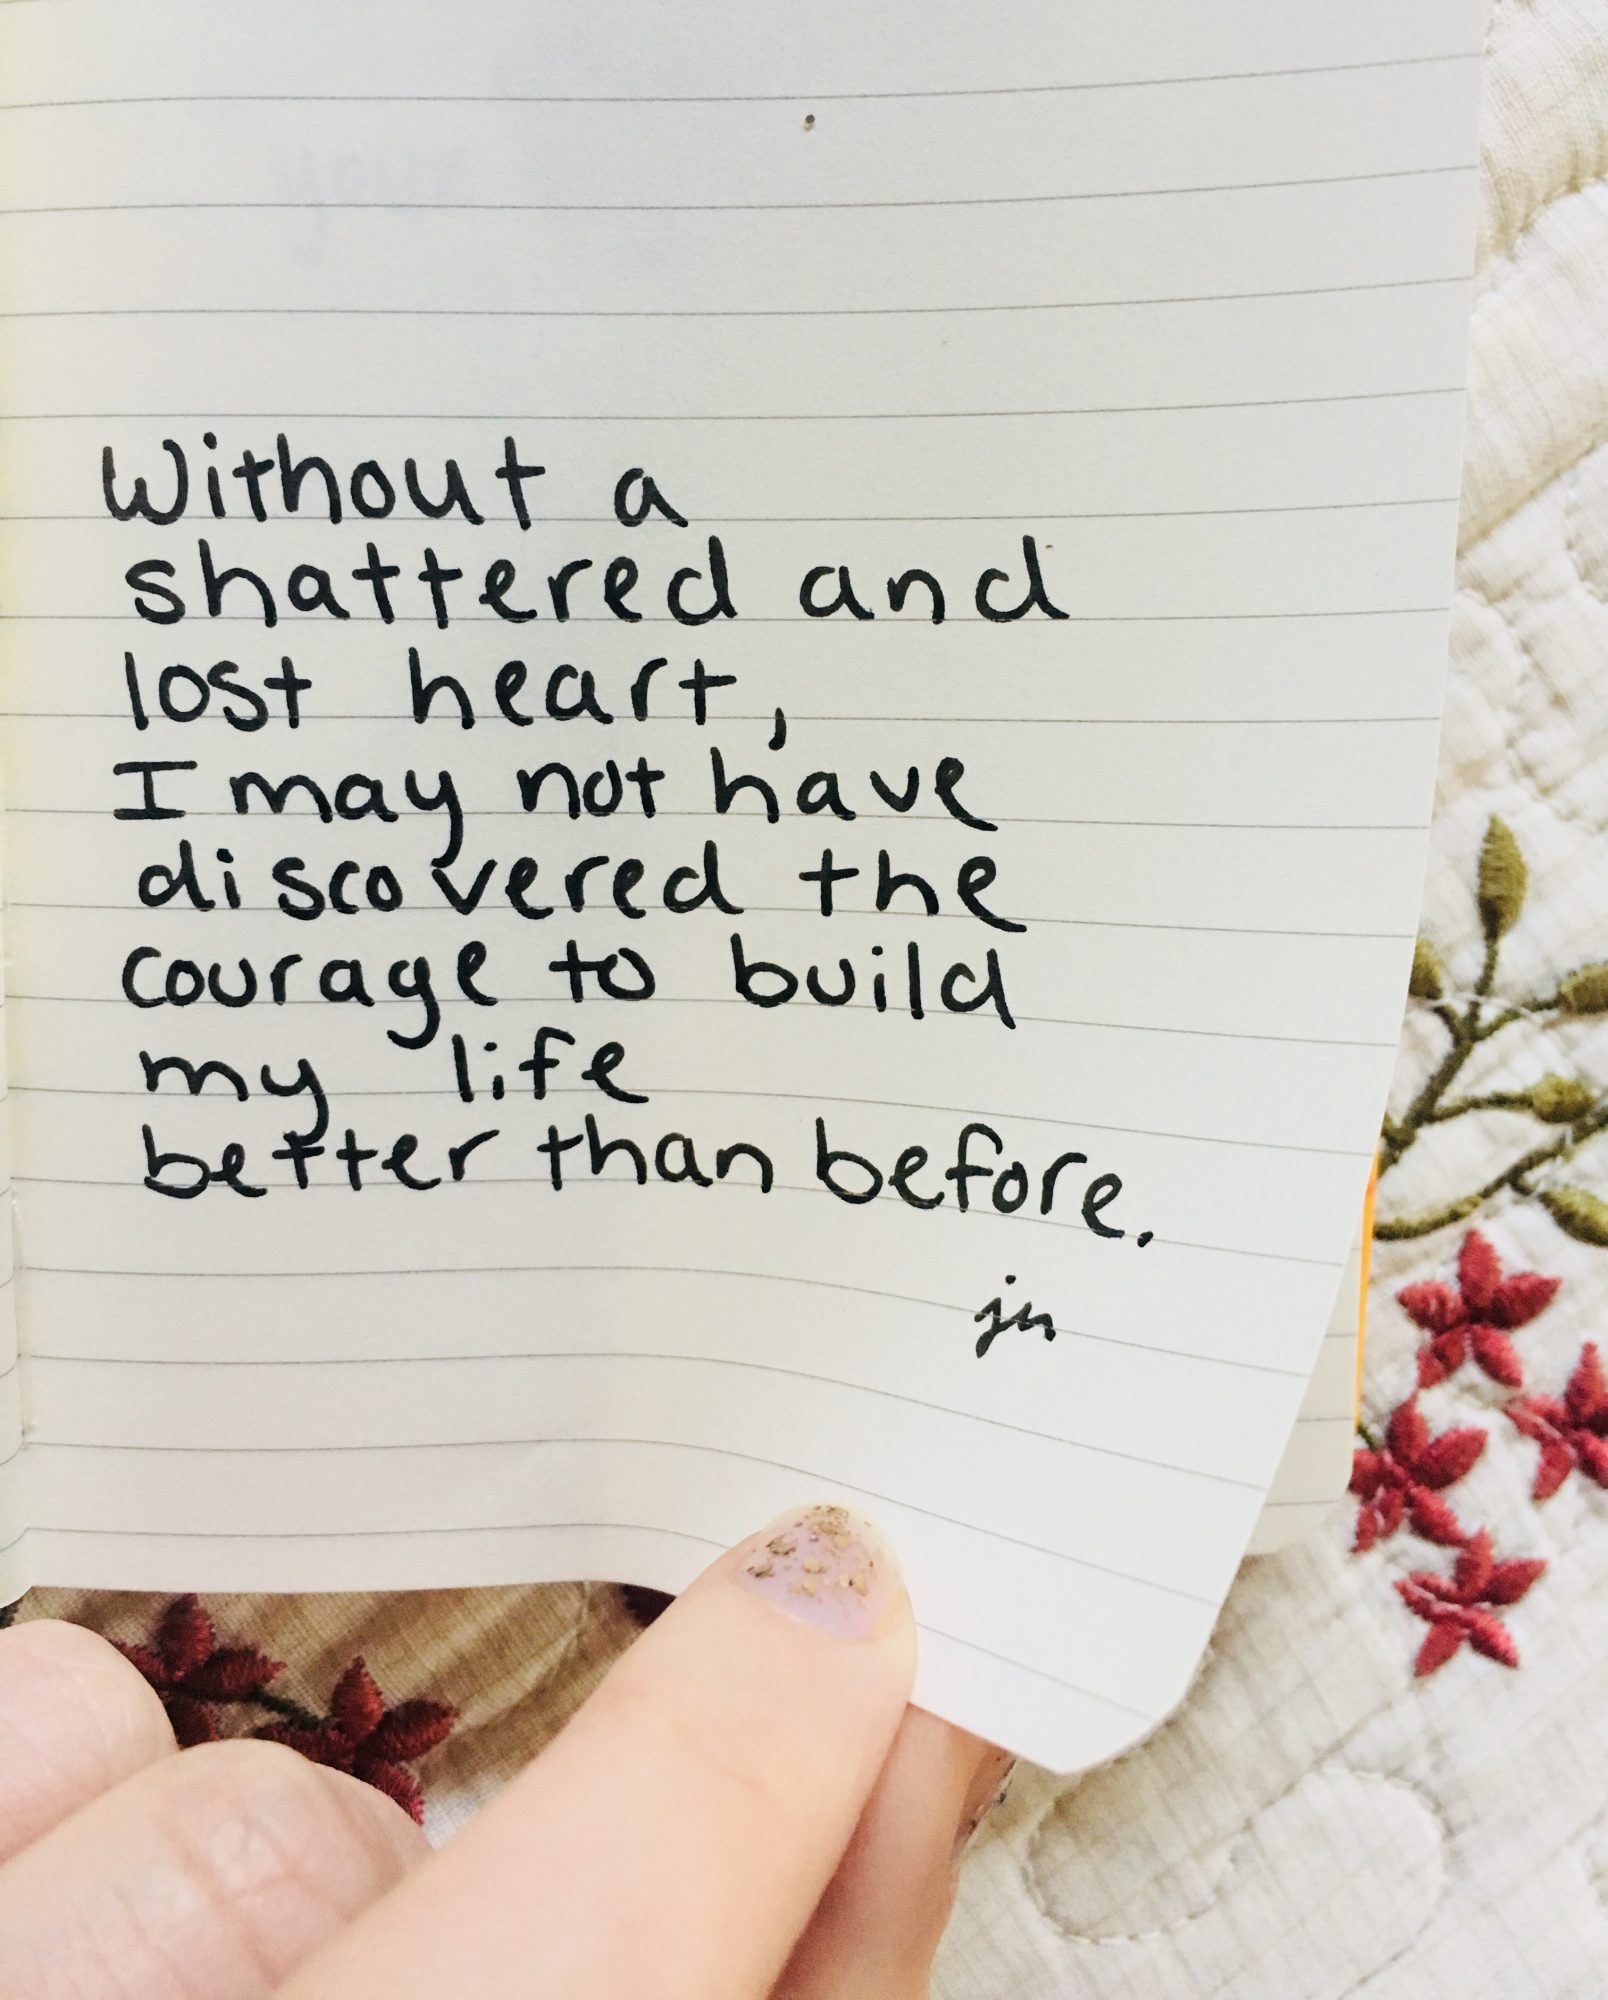 Without a
shattered and
lost heart,
I may not have
discovered the
courage to build
my life
better than before.
jn